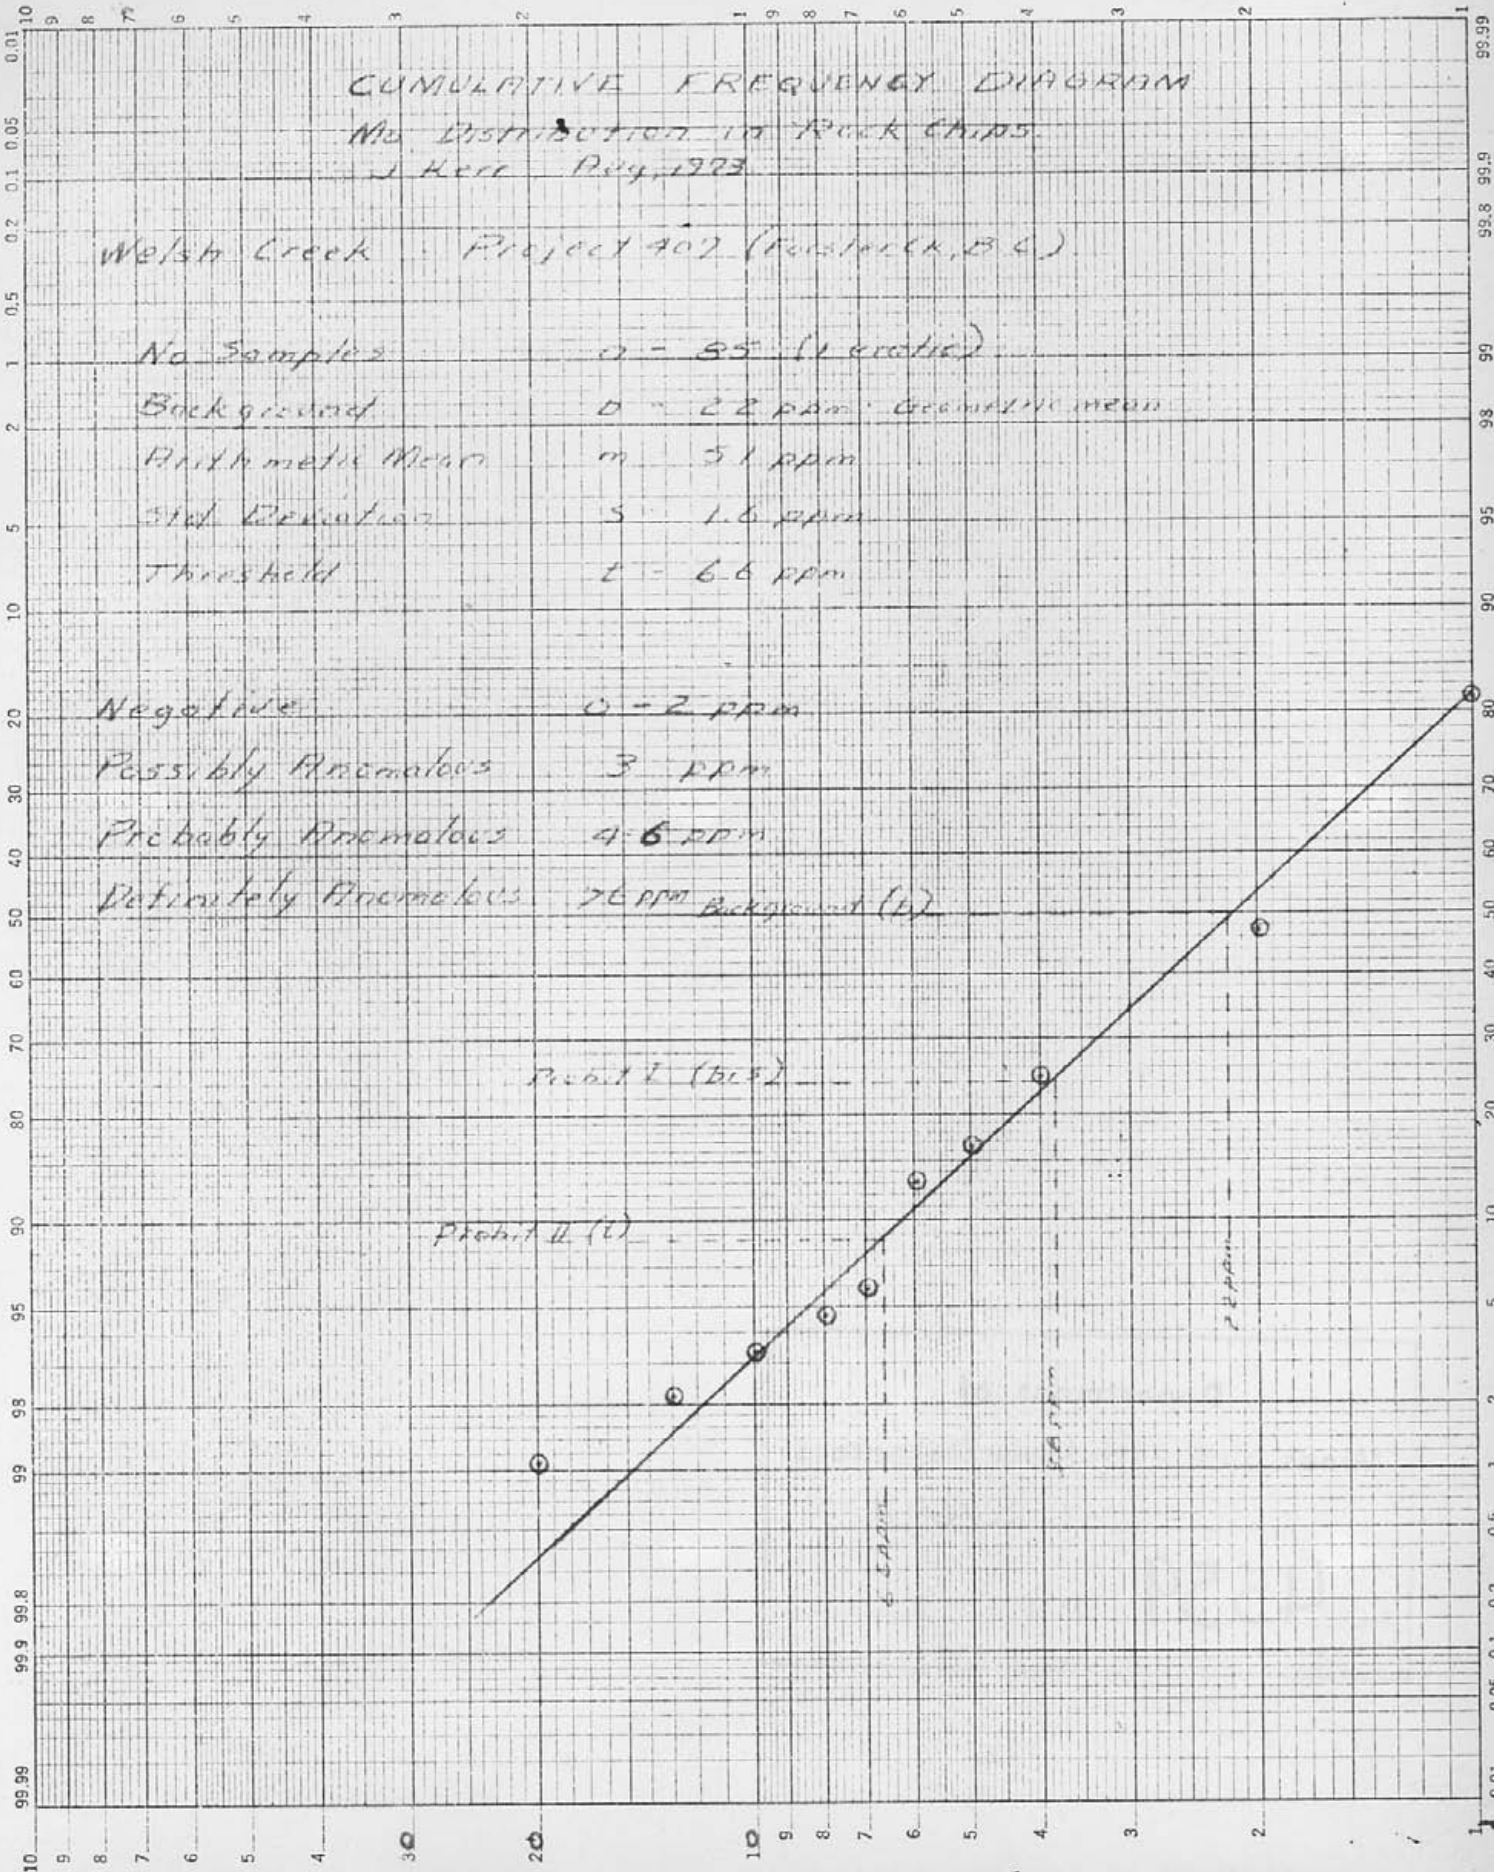 10 9 8 7 6 5 4 3 2 1 9 8 7 6 5 4 3 2 1
CUMULATIVE FREQUENCY DIAGRAM
Mo Distribution in Rock Chips
J Kerr Aug, 1973
Welsh Creek Project 407 (B.C.)
No Samples n - 85 (1 erratic)
Background b - 2.2 ppm Geometric mean
Arithmetic Mean m 5.1 ppm
Std. Deviation s 1.6 ppm
Threshold t - 6.6 ppm
Negative 0 - 2 ppm
Possibly Anomalous 3 ppm
Probably Anomalous 4-6 ppm
Definitely Anomalous >6 ppm
Background (b)
Probit I (b+s)
Probit II (t)
2.2 ppm
3.8 ppm
6.5 ppm
0.01 0.05 0.1 0.2 0.5 1 2 5 10 20 30 40 50 60 70 80 90 95 98 99 99.8 99.9 99.99
99.99 99.9 99.8 99 98 95 90 80 70 60 50 40 30 20 10 5 2 1 0.5 0.2 0.1 0.05 0.01
10 9 8 7 6 5 4 30 20 10 9 8 7 6 5 4 3 2 1